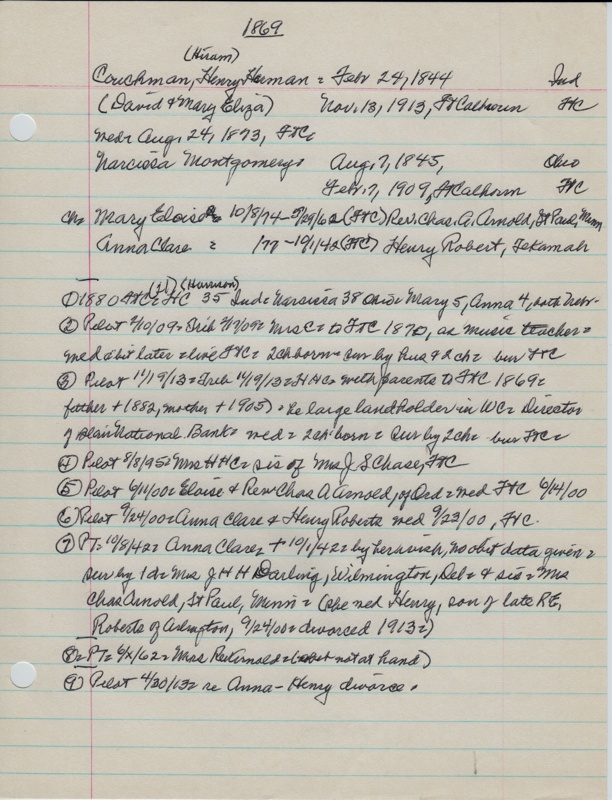 1869
(Hiram)
Couchman, Henry Herman = Febr 24, 1844 Ind
(David & Mary Eliza) Nov. 13, 1913, Ft Calhoun FtC
wed = Aug. 24, 1873, FtC
Narcissa Montgomery = Aug. 7, 1845, Ohio
Febr. 7, 1909, Ft Calhoun FtC
ch = Mary Eloise = 10/8/74 - 5/29/62 (FtC) Rev. Chas. A. Arnold, St Paul, Minn
Anna Clare = /77 - 10/1/42 (FtC) Henry Robert, Tekamah
(J) (Harrison)
① 1880 FtC = HC 35 Ind = Narcissa 38 Ohio = Mary 5, Anna 4, both Nebr.
② Pilot 2/10/09 = Trib 2/17/09 = Mrs C = to FtC 1870, as music teacher =
wed a bit later = live FtC = 2 ch born = sur by hus & 2 ch = bur FtC
③ Pilot 11/19/13 = Trib 11/19/13 = HHC = with parents to FtC 1869 =
father + 1882, mother + 1905) = he large landholder in WC = Director
of Blair National Bank = wed = 2 ch born = sur by 2 ch = bur FtC =
④ Pilot 8/8/95 = Mrs HHC = sis of Mrs J S Chase, FtC
⑤ Pilot 6/11/00 = Eloise & Rev Chas A Arnold, of Ord = wed FtC 6/14/00
⑥ Pilot 9/24/00 = Anna Clare & Henry Roberts wed 9/23/00, FtC.
⑦ PT = 10/8/42 = Anna Clare = + 10/1/42 = by her wish, no obit data given =
sur by 1 d = Mrs J H H Darling, Wilmington, Del = & sis = Mrs
Chas Arnold, St Paul, Minn = (she wed Henry, son of late R E,
Roberts of Arlington, 9/24/00 = divorced 1913 =)
⑧ = PT = 6/x/62 = Mrs Rev Arnold = (obit not at hand)
⑨ Pilot 4/30/13 = re Anna - Henry divorce.